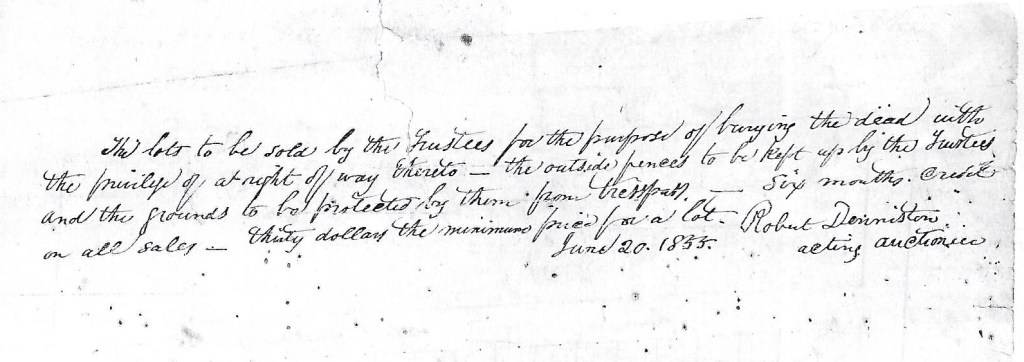 The lots to be sold by the Trustees for the purpose of burying the dead with
the privilege of, at right of way thereto — the outside fences to be kept up by the Trustees
and the grounds to be protected by them from tresspass, — Six months credit
on all sales — thirty dollars the minimum price for a lot. Robert Denniston
June 20. 1855. acting auctioneer